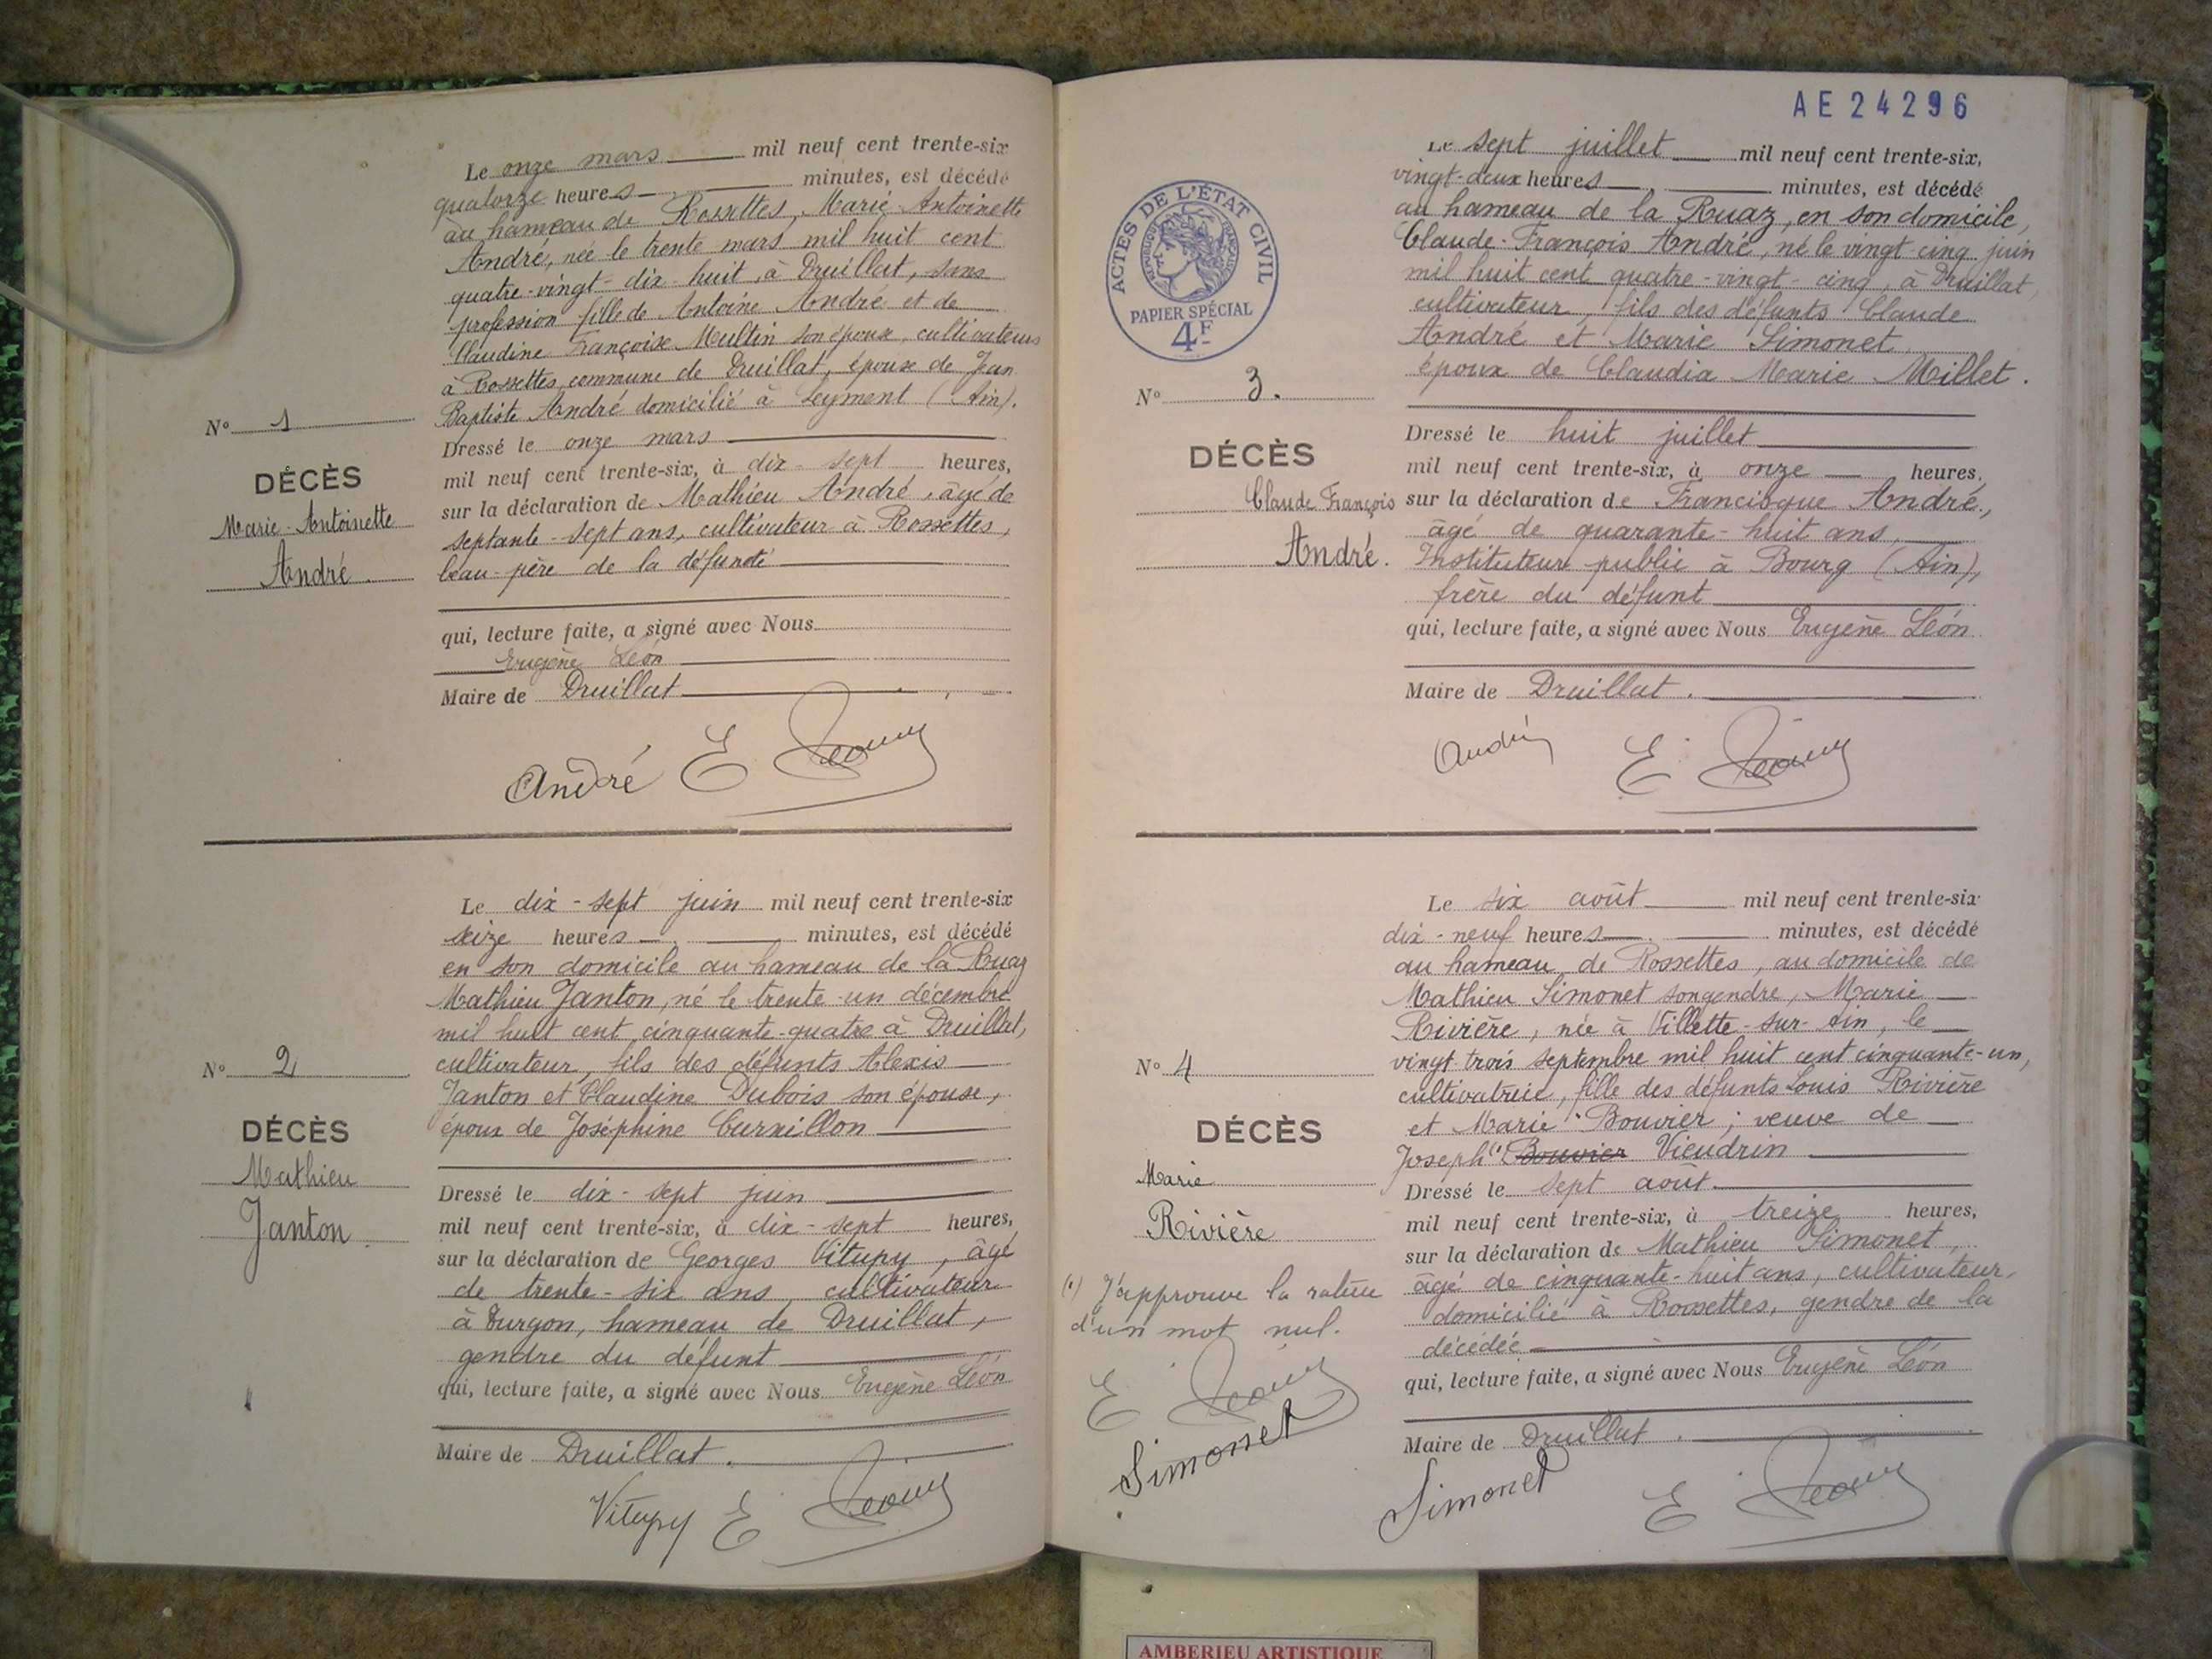 Le onze mars mil neuf cent trente-six
quatorze heures minutes, est décédé
au hameau de Rossettes, Marie-Antoinette
André, née le trente mars mil huit cent
quatre-vingt-dix-huit, à Druillat, sans
profession fille de Antoine André et de
Claudine Françoise Multin son épouse, cultivateurs
à Rossettes, commune de Druillat, épouse de Jean
Baptiste André domicilié à Leyment (Ain).
Nº 1
DÉCÈS
Marie-Antoinette
André
Dressé le onze mars
mil neuf cent trente-six, à dix-sept heures,
sur la déclaration de Mathieu André, âgé de
septante-sept ans, cultivateur à Rossettes,
beau-père de la défunte
qui, lecture faite, a signé avec Nous
Eugène Léon
Maire de Druillat
André E Léon
Le dix-sept juin mil neuf cent trente-six
seize heures minutes, est décédé
en son domicile au hameau de la Ruaz
Mathieu Janton, né le trente-un décembre
mil huit cent cinquante-quatre à Druillat,
cultivateur, fils des défunts Alexis
Janton et Claudine Dubois son épouse,
époux de Joséphine Curnillon
Nº 2
DÉCÈS
Mathieu
Janton
Dressé le dix-sept juin
mil neuf cent trente-six, à dix-sept heures,
sur la déclaration de Georges Vitupy, âgé
de trente-six ans, cultivateur
à Turgon, hameau de Druillat,
gendre du défunt
qui, lecture faite, a signé avec Nous Eugène Léon
Maire de Druillat.
Vitupy E Léon
AE24296
Le sept juillet mil neuf cent trente-six,
vingt-deux heures minutes, est décédé
au hameau de la Ruaz, en son domicile,
Claude-François André, né le vingt-cinq juin
mil huit cent quatre-vingt-cinq, à Druillat,
cultivateur, fils des défunts Claude
André et Marie Simonet,
époux de Claudia Marie Millet.
ACTES DE L'ÉTAT CIVIL
RÉPUBLIQUE FRANÇAISE
PAPIER SPÉCIAL
4F
Nº 3.
DÉCÈS
Claude François
André.
Dressé le huit juillet
mil neuf cent trente-six, à onze heures,
sur la déclaration de Francisque André,
âgé de quarante-huit ans,
Instituteur public à Bourg (Ain),
frère du défunt
qui, lecture faite, a signé avec Nous Eugène Léon
Maire de Druillat.
André E Léon
Le six août mil neuf cent trente-six
dix-neuf heures minutes, est décédé
au hameau de Rossettes, au domicile de
Mathieu Simonet son gendre, Marie
Rivière, née à Villette-sur-Ain, le
vingt trois septembre mil huit cent cinquante-un,
cultivatrice, fille des défunts Louis Rivière
et Marie Bouvier; veuve de
Joseph (1) Bouvier Vieudrin
Nº 4
DÉCÈS
Marie
Rivière
(1) J'approuve la rature
d'un mot nul.
E Léon
Simonet
Dressé le sept août
mil neuf cent trente-six, à treize heures,
sur la déclaration de Mathieu Simonet,
âgé de cinquante-huit ans, cultivateur,
domicilié à Rossettes, gendre de la
décédée
qui, lecture faite, a signé avec Nous Eugène Léon
Maire de Druillat.
Simonet E Léon
AMBERIEU ARTISTIQUE